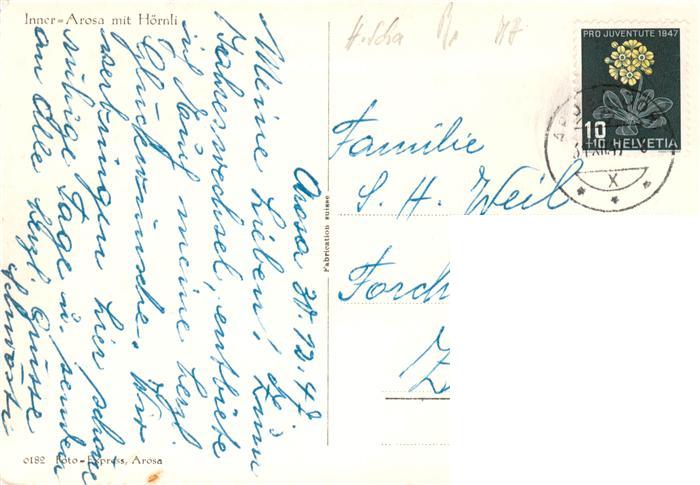 Inner-Arosa mit Hörnli
Arosa 30.12.47
Meine Lieben! Zum
Jahreswechsel, entbiete
ich Euch meine herzl.
Glückwünsche. Wir
verbringen hier schöne
ruhige Tage u. senden
an Alle herzl. Grüsse
0182 Foto-Express, Arosa
Fabrication suisse
PRO JUVENTUTE 1947
10
+10 HELVETIA
X
Familie
S. H. Weil
Forch
Z